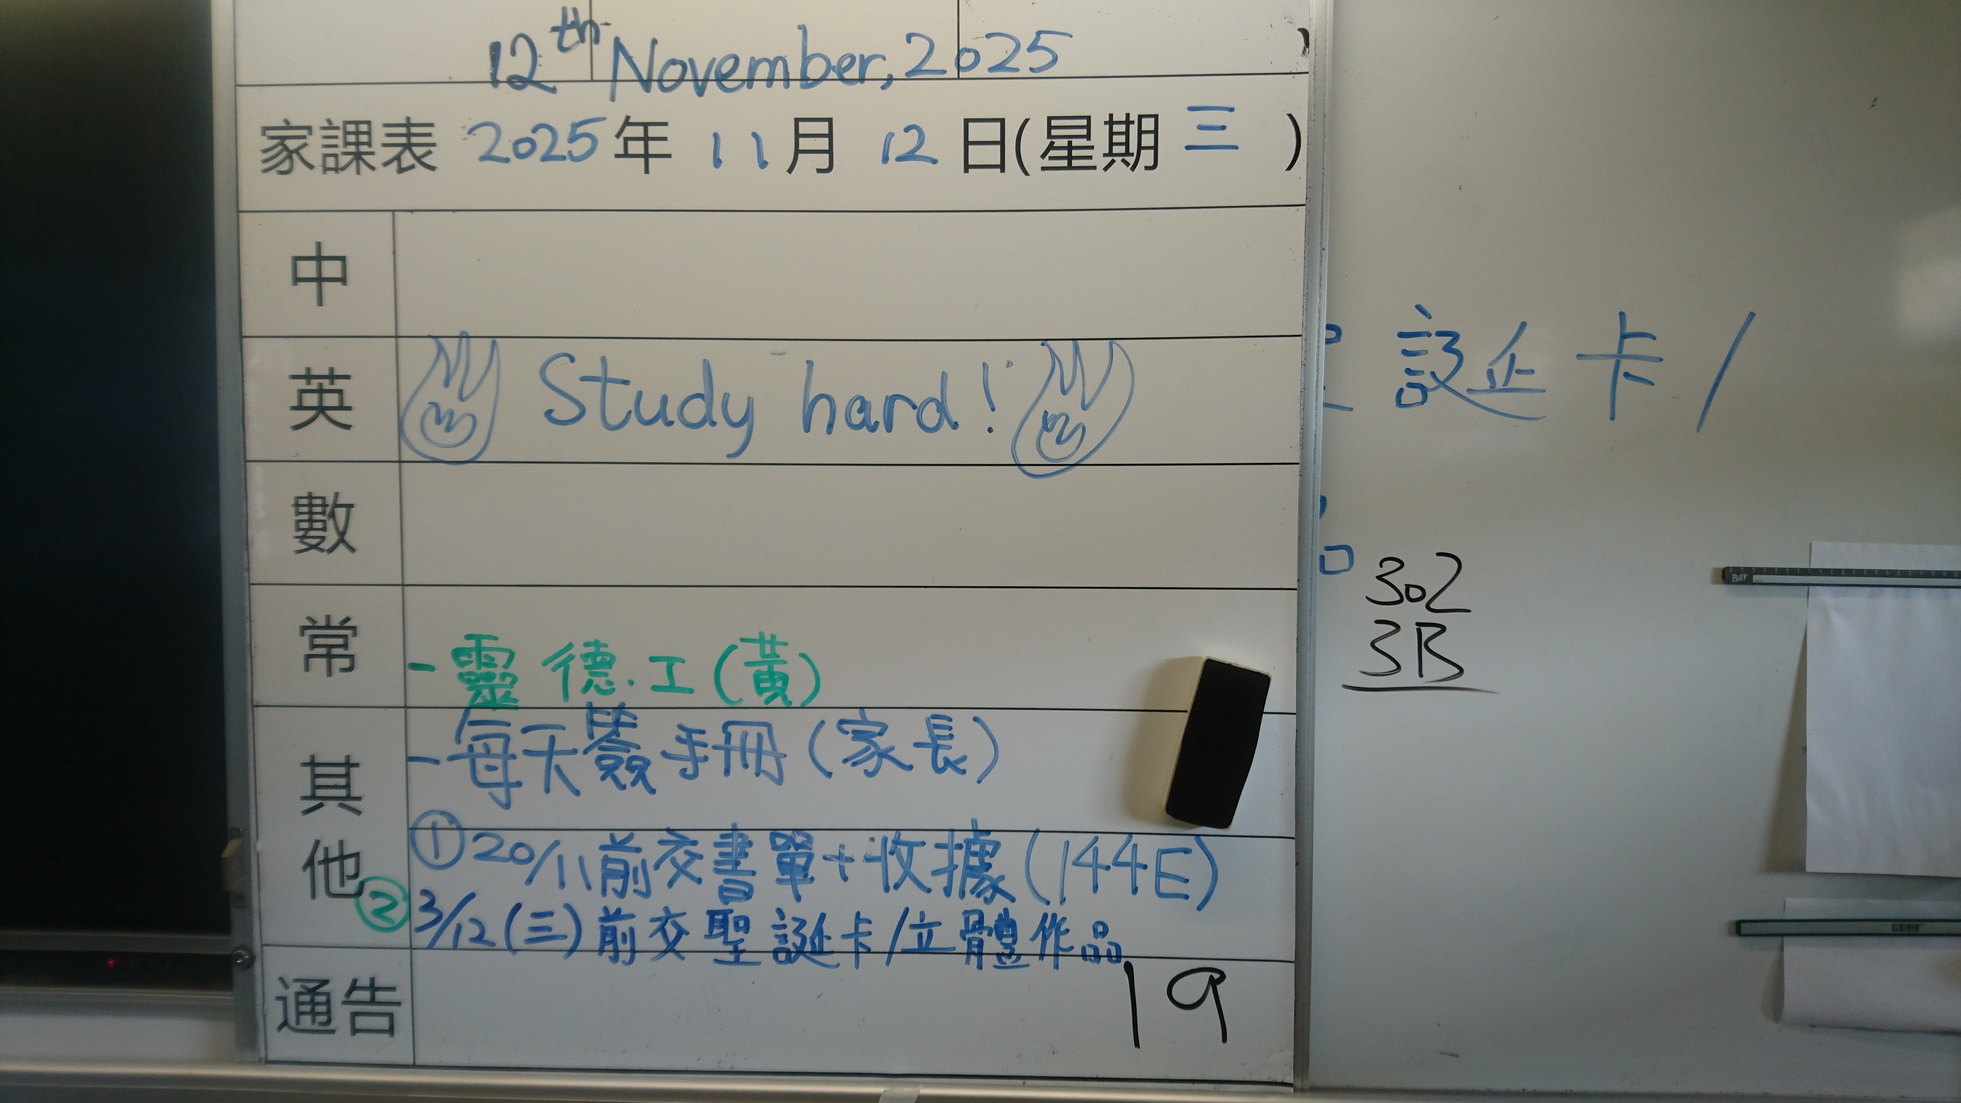 12th November, 2025
家課表 2025年 11月 12日(星期三)
中
英 Study hard!
數
常 - 靈 德.工(黃)
其他 - 每天簽手冊(家長)
① 20/11前交書單+收據(144E)
② 3/12(三)前交聖誕卡/立體作品
通告 19
誕卡/
302
3B